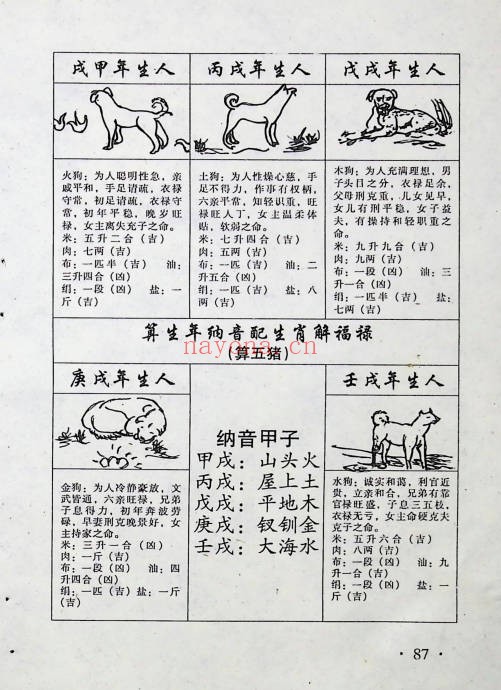 戌甲年生人
火狗：为人聪明性急，亲
戚平和，手足请疏，衣禄
守常，初足请疏，衣禄
守常，初年平稳，晚岁旺
禄；女主离失充子之命。
米：五升二合（吉）
肉：七两（吉）
布：一匹半（吉） 油：
三升四合（凶）
绢：一段（凶） 盐：一
斤（吉）
丙戌年生人
土狗：为人性燥心慈，手
足不得力，作事有权柄，
六亲平常，知轻识重，旺
禄旺人丁，女主温柔体
贴，软弱之命。
米：七升四合（吉）
肉：五两（吉）
布：一匹半（吉） 油：二
升五合（凶）
绢：一匹（吉） 盐：八
两（吉）
戊戌年生人
木狗：为人充满理想，男
子头目之分，衣禄足余，
父母刑克重，儿女见早，
女儿有刑平稳，女子益
夫，有操持和轻职重之
命。
米：九升九合（吉）
肉：九两（吉）
布：一段（凶） 油：三
升一合（凶）
绢：一段（凶） 盐：
七两（吉）
算生年纳音配生肖解福禄
（算五猪）
庚戌年生人
金狗：为人冷静豪放，文
武皆通，六亲旺禄，兄弟
子息得力，初年奔波劳
碌，早妻刑克晚景好，女
主持家之命。
米：三升一合（凶）
肉：一斤（吉）
布：一段（凶） 油：四
升四合（凶）
绢：一匹（吉）盐：一斤
（吉）
纳音甲子
甲戌：山头火
丙戌：屋上土
戊戌：平地木
庚戌：钗钏金
壬戌：大海水
壬戌年生人
水狗：诚实和蔼，利官近
贵，立亲和合，兄弟有靠
官禄旺盛，子息三五枝，
衣禄无亏，女主命硬克夫
克子之命。
米：五升六合（吉）
肉：八两（吉）
布：一段（凶） 油：九
升一合（吉）
绢：一段（凶） 盐：一
斤（吉）
nayona.cn
· 87 ·